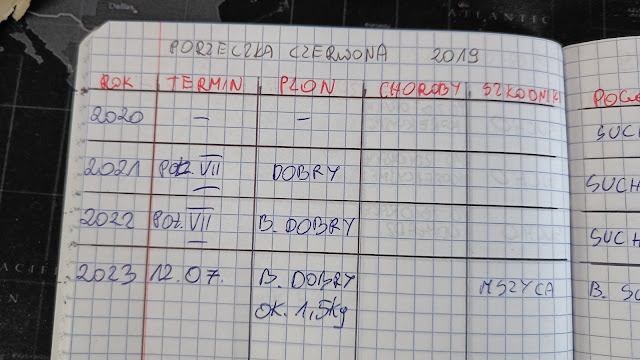 PORZECZKA CZERWONA 2019
ROK TERMIN PLON CHOROBY SZKODNIKI
2020 – –
SUCH
2021 VII DOBRY
SUCH
2022 POŁ. VII B. DOBRY
SUCH
2023 12.07. B. DOBRY MSZYCA B. SU
OK. 1,5kg
ATLANTIC